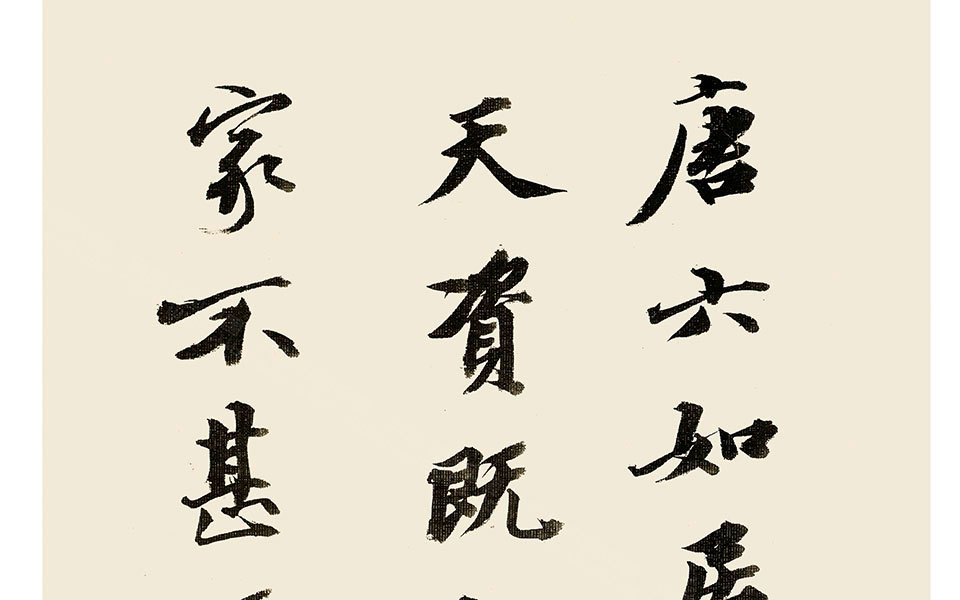 唐六如居
天資既
家不甚